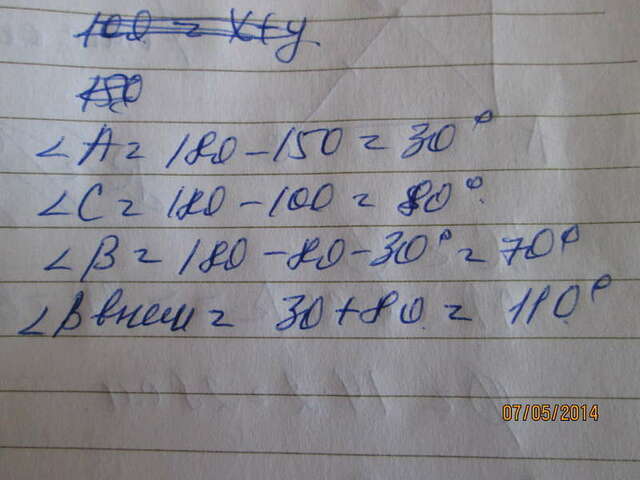 100 = x+y
150
∠A = 180 - 150 = 30°
∠C = 180 - 100 = 80°.
∠B = 180 - 80 - 30° = 70°
∠B внеш = 30 + 80 = 110°
07/05/2014